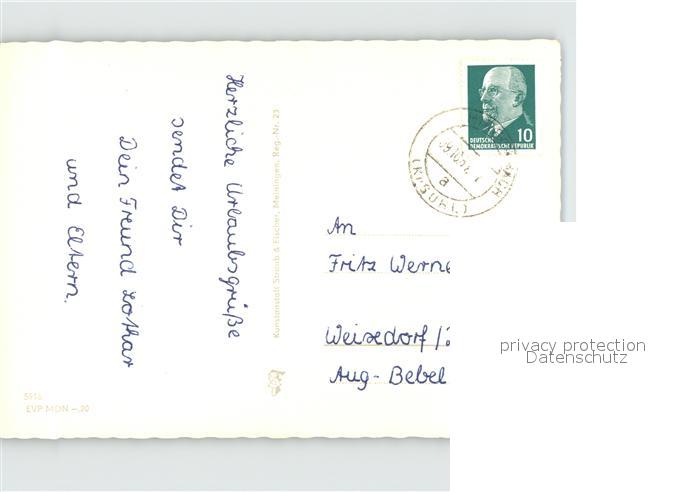 Herzliche Urlaubsgrüße
sendet Dir
Dein Freund Lothar
und Eltern.
Kunstanstalt Straub & Fischer, Meiningen, Reg.-Nr. 23
5516
EVP MDN –.20
10
DEUTSCHE
DEMOKRATISCHE REPUBLIK
(KR. SUHL)
a
An
Fritz Werne
Weixdorf /
Aug- Bebel
privacy protection
Datenschutz